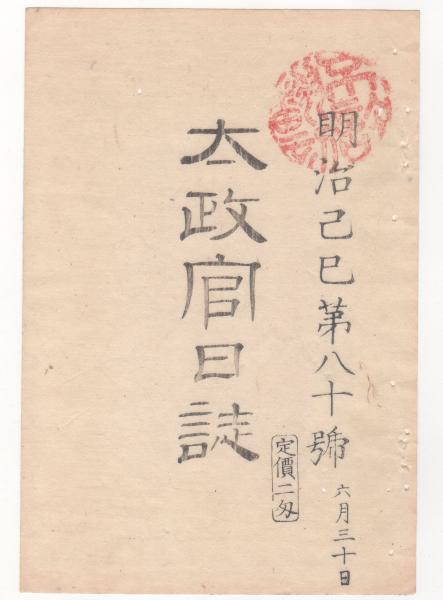 明治己巳第八十號
六月三十日
定價二匁
太政官日誌